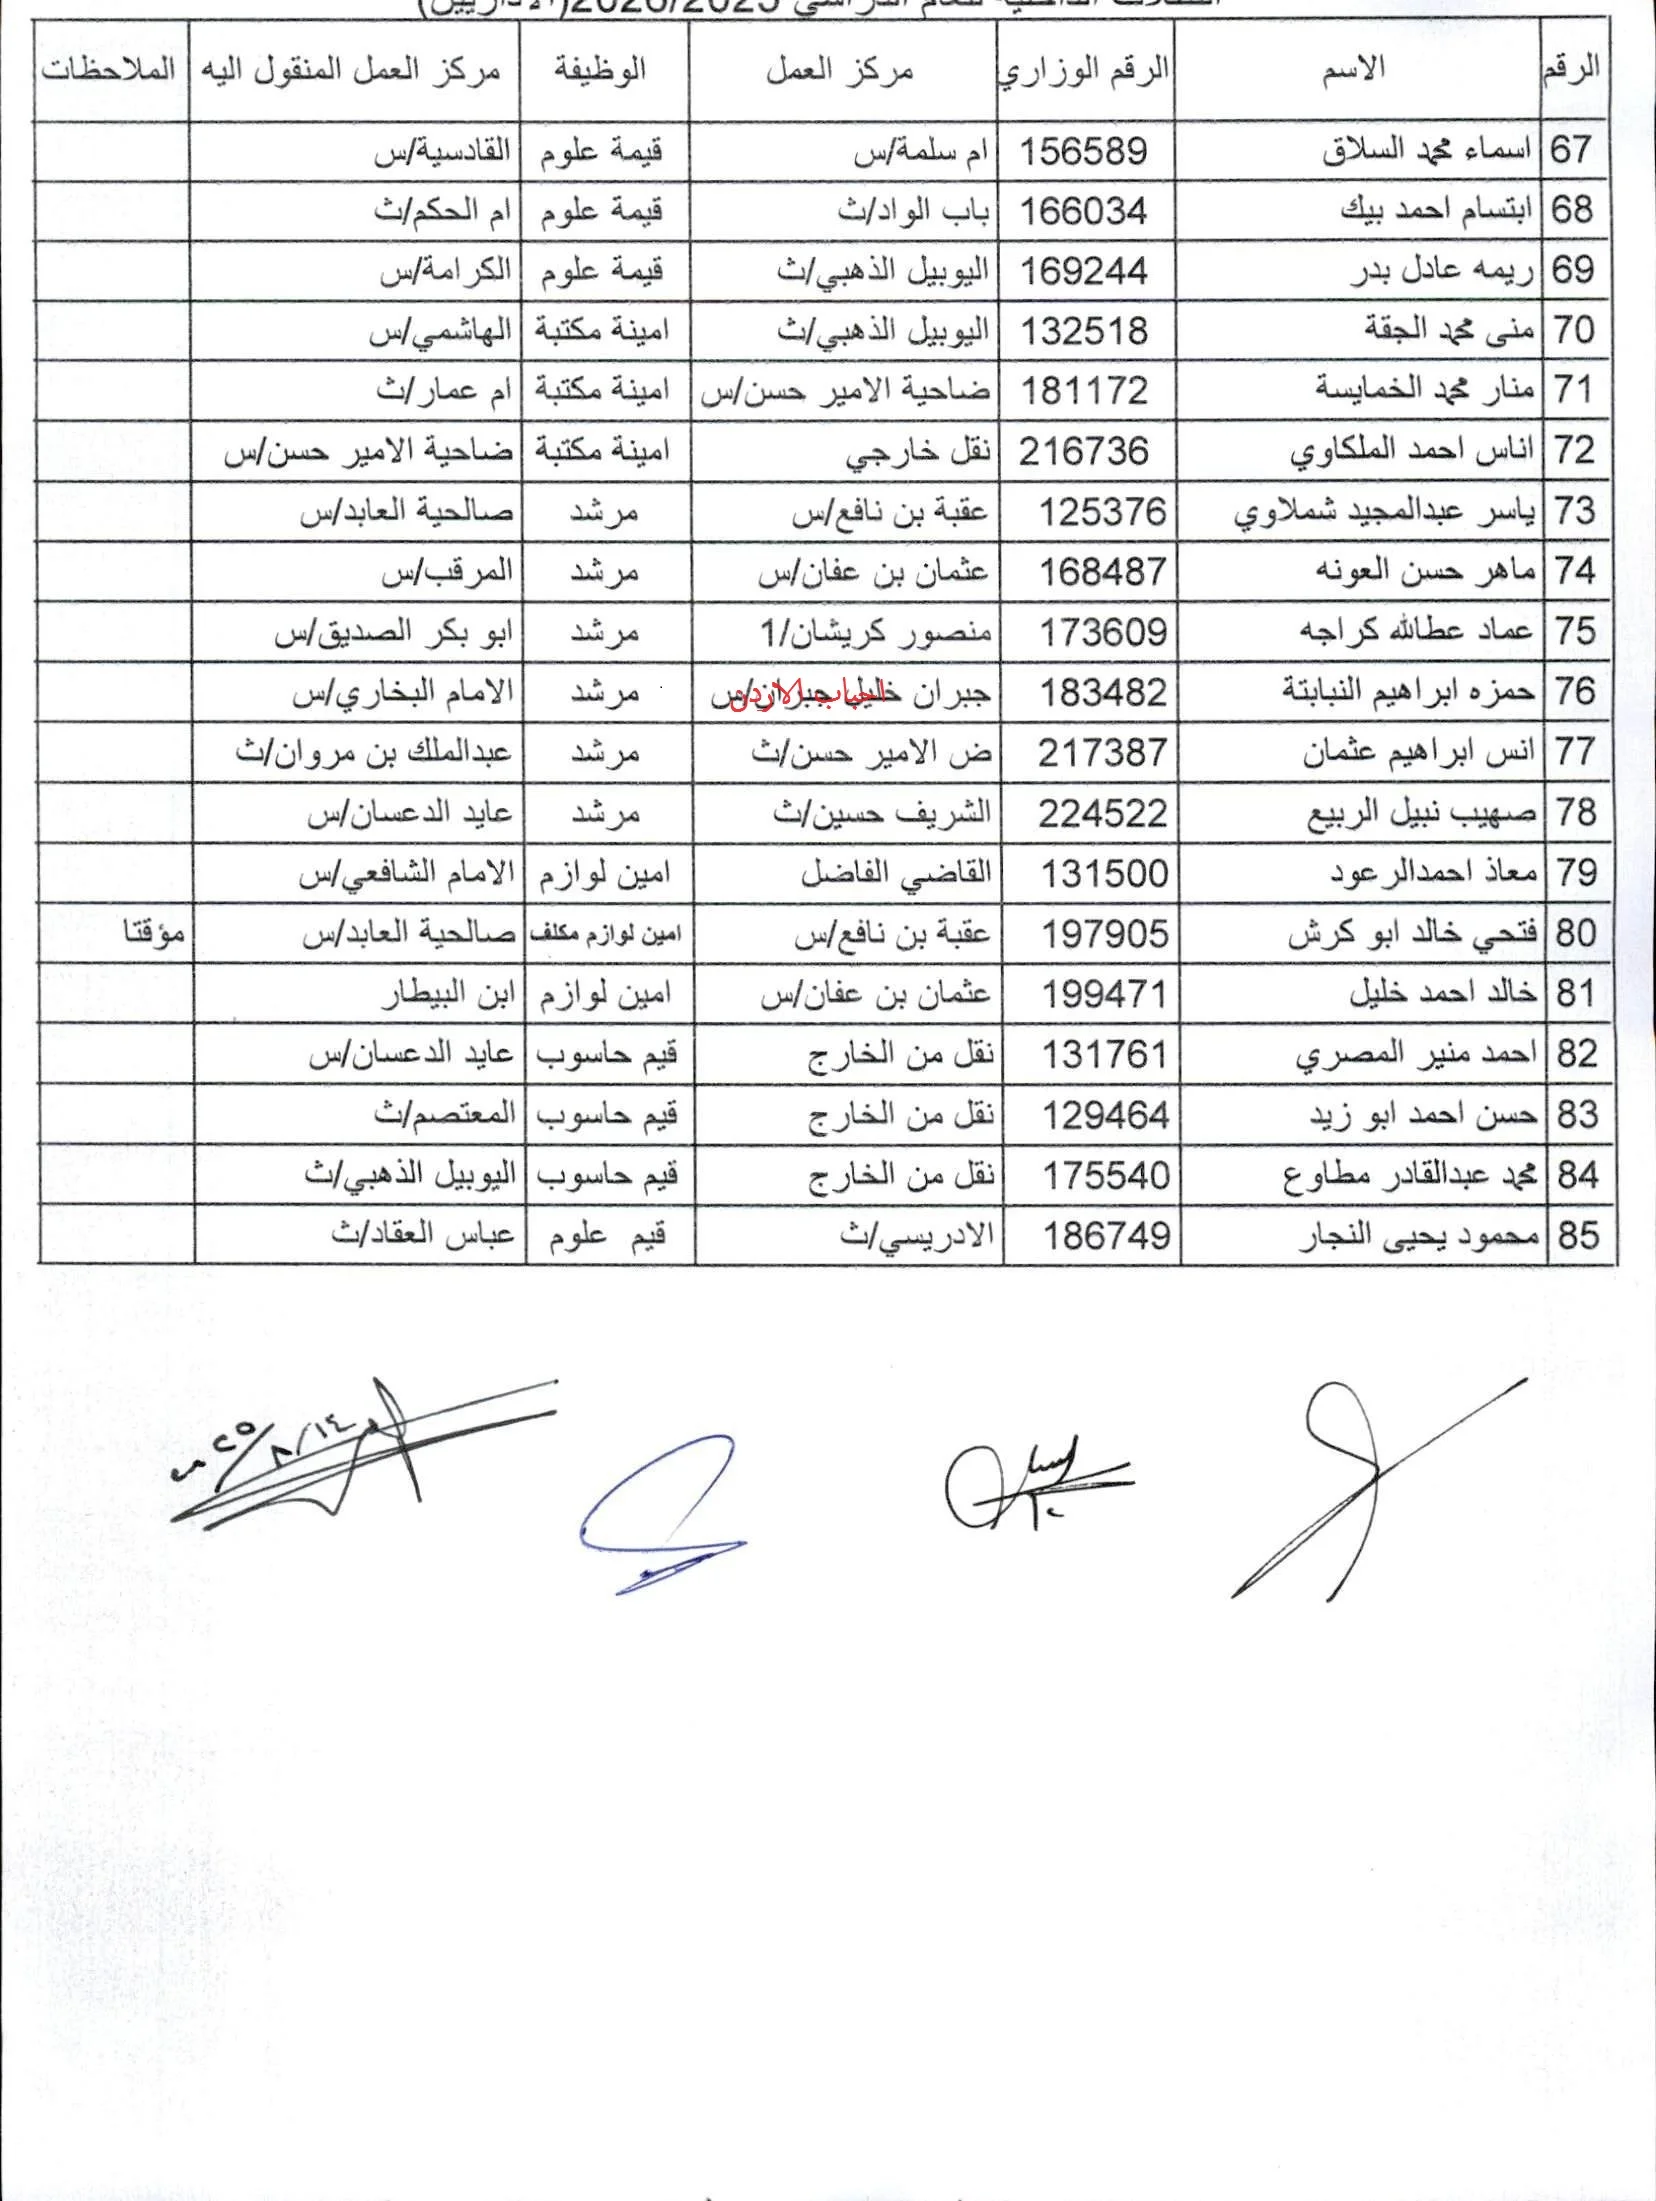 التنقلات الداخلية للعام الدراسي 2026/2025(الاداريين)
الرقم الاسم الرقم الوزاري مركز العمل الوظيفة مركز العمل المنقول اليه الملاحظات
67 اسماء محمد السلاق 156589 ام سلمة/س قيمة علوم القادسية/س
68 ابتسام احمد بيك 166034 باب الواد/ث قيمة علوم ام الحكم/ث
69 ريمه عادل بدر 169244 اليوبيل الذهبي/ث قيمة علوم الكرامة/س
70 منى محمد الجقة 132518 اليوبيل الذهبي/ث امينة مكتبة الهاشمي/س
71 منار محمد الخمايسة 181172 ضاحية الامير حسن/س امينة مكتبة ام عمار/ث
72 اناس احمد الملكاوي 216736 نقل خارجي امينة مكتبة ضاحية الامير حسن/س
73 ياسر عبدالمجيد شملاوي 125376 عقبة بن نافع/س مرشد صالحية العابد/س
74 ماهر حسن العونه 168487 عثمان بن عفان/س مرشد المرقب/س
75 عماد عطالله كراجه 173609 منصور كريشان/1 مرشد ابو بكر الصديق/س
76 حمزه ابراهيم النبابتة 183482 جبران خليل جبران/س احباب الاردن مرشد الامام البخاري/س
77 انس ابراهيم عثمان 217387 ض الامير حسن/ث مرشد عبدالملك بن مروان/ث
78 صهيب نبيل الربيع 224522 الشريف حسين/ث مرشد عايد الدعسان/س
79 معاذ احمدالرعود 131500 القاضي الفاضل امين لوازم الامام الشافعي/س
80 فتحي خالد ابو كرش 197905 عقبة بن نافع/س امين لوازم مكلف صالحية العابد/س مؤقتا
81 خالد احمد خليل 199471 عثمان بن عفان/س امين لوازم ابن البيطار
82 احمد منير المصري 131761 نقل من الخارج قيم حاسوب عايد الدعسان/س
83 حسن احمد ابو زيد 129464 نقل من الخارج قيم حاسوب المعتصم/ث
84 محمد عبدالقادر مطاوع 175540 نقل من الخارج قيم حاسوب اليوبيل الذهبي/ث
85 محمود يحيى النجار 186749 الادريسي/ث قيم علوم عباس العقاد/ث